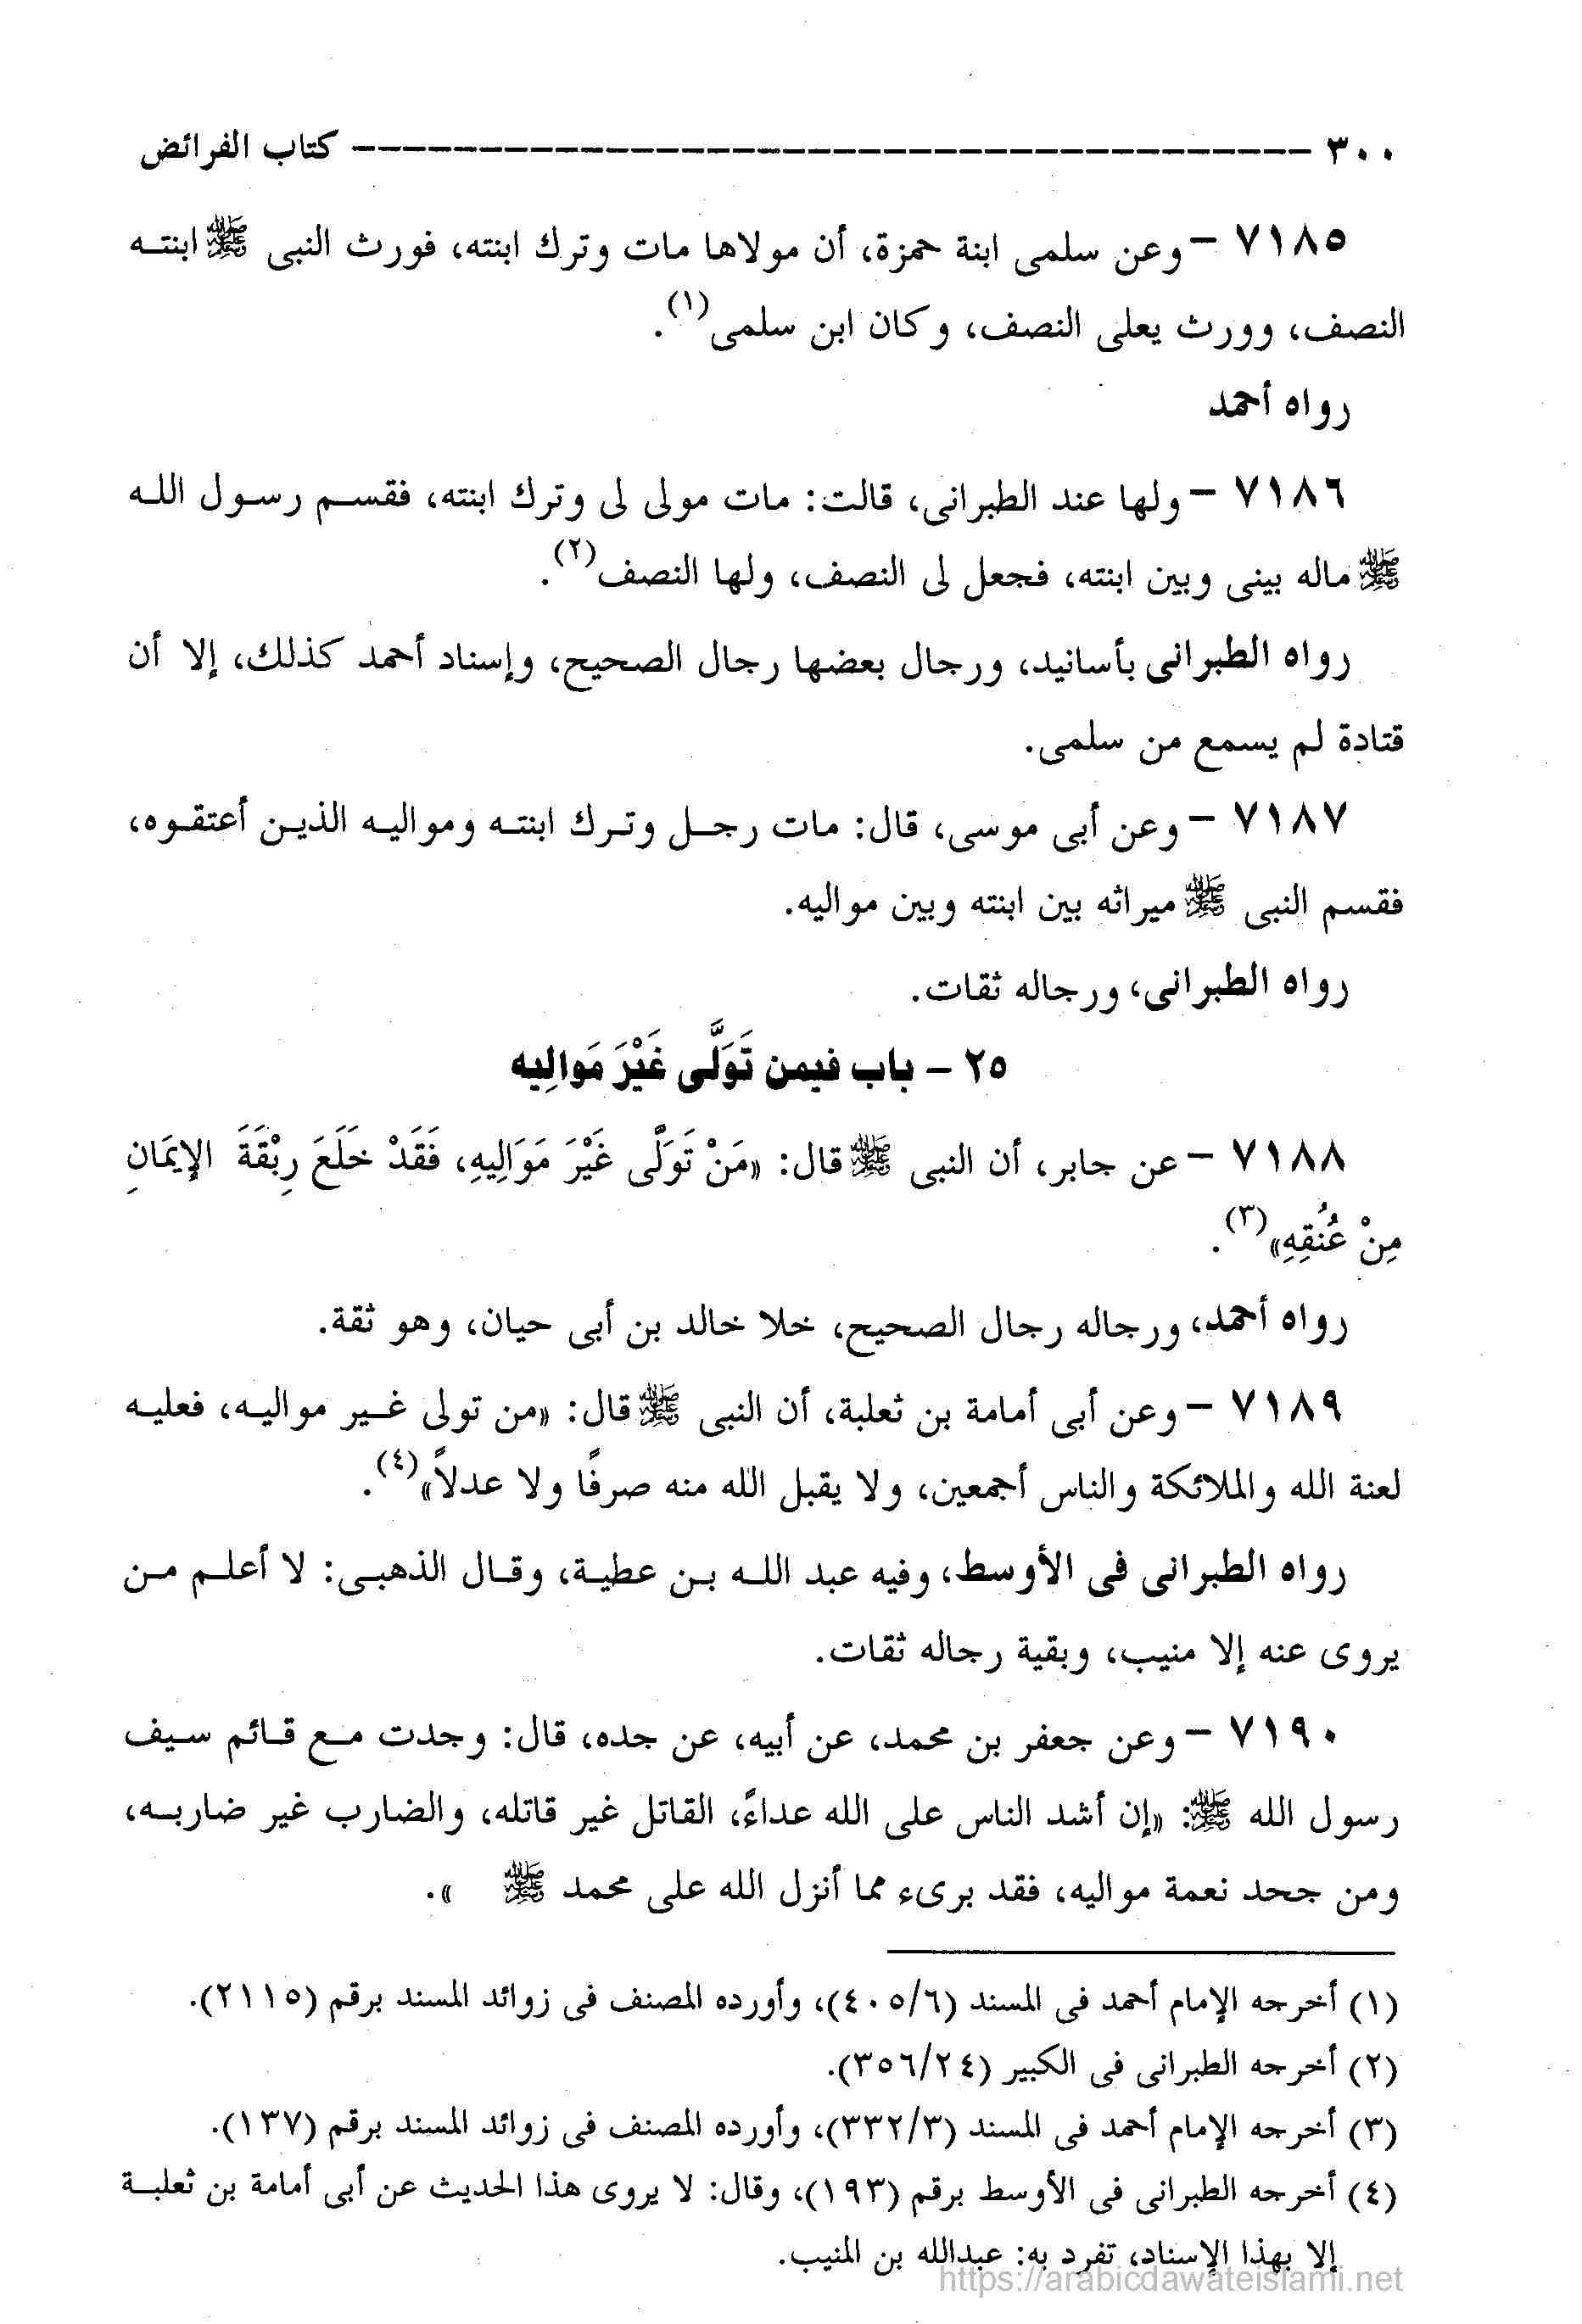 ٣٠٠ ---------------------------------------- كتاب الفرائض
٧١٨٥ – وعن سلمى ابنة حمزة، أن مولاها مات وترك ابنته، فورث النبى ﷺ ابنته
النصف، وورث يعلى النصف، وكان ابن سلمى(١).
رواه أحمد
٧١٨٦ – ولها عند الطبرانى، قالت: مات مولى لى وترك ابنته، فقسم رسول الله
ﷺ ماله بينى وبين ابنته، فجعل لى النصف، ولها النصف(٢).
رواه الطبرانى بأسانيد، ورجال بعضها رجال الصحيح، وإسناد أحمد كذلك، إلا أن
قتادة لم يسمع من سلمى.
٧١٨٧ – وعن أبى موسى، قال: مات رجل وترك ابنته ومواليه الذين أعتقوه،
فقسم النبى ﷺ ميراثه بين ابنته وبين مواليه.
رواه الطبرانى، ورجاله ثقات.
٢٥ – باب فيمن تَوَلَّى غَيْرَ مَوالِيه
٧١٨٨ – عن جابر، أن النبى ﷺ قال: «مَنْ تَوَلَّى غَيْرَ مَوَالِيهِ، فَقَدْ خَلَعَ رِبْقَةَ الإِيمَانِ
مِنْ عُنُقِهِ»(٣).
رواه أحمد، ورجاله رجال الصحيح، خلا خالد بن أبى حيان، وهو ثقة.
٧١٨٩ – وعن أبى أمامة بن ثعلبة، أن النبى ﷺ قال: «من تولى غير مواليه، فعليه
لعنة الله والملائكة والناس أجمعين، ولا يقبل الله منه صرفًا ولا عدلاً»(٤).
رواه الطبرانى فى الأوسط، وفيه عبد الله بن عطية، وقال الذهبى: لا أعلم من
يروى عنه إلا منيب، وبقية رجاله ثقات.
٧١٩٠ – وعن جعفر بن محمد، عن أبيه، عن جده، قال: وجدت مع قائم سيف
رسول الله ﷺ: «إن أشد الناس على الله عداءً، القاتل غير قاتله، والضارب غير ضاربه،
ومن جحد نعمة مواليه، فقد برىء مما أنزل الله على محمد ﷺ ».
(١) أخرجه الإمام أحمد فى المسند (٤٠٥/٦)، وأورده المصنف فى زوائد المسند برقم (٢١١٥).
(٢) أخرجه الطبرانى فى الكبير (٣٥٦/٢٤).
(٣) أخرجه الإمام أحمد فى المسند (٣٣٢/٣)، وأورده المصنف فى زوائد المسند برقم (١٣٧).
(٤) أخرجه الطبرانى فى الأوسط برقم (١٩٣)، وقال: لا يروى هذا الحديث عن أبى أمامة بن ثعلبة
إلا بهذا الإسناد، تفرد به: عبدالله بن المنيب.
https://arabicdawateislami.net